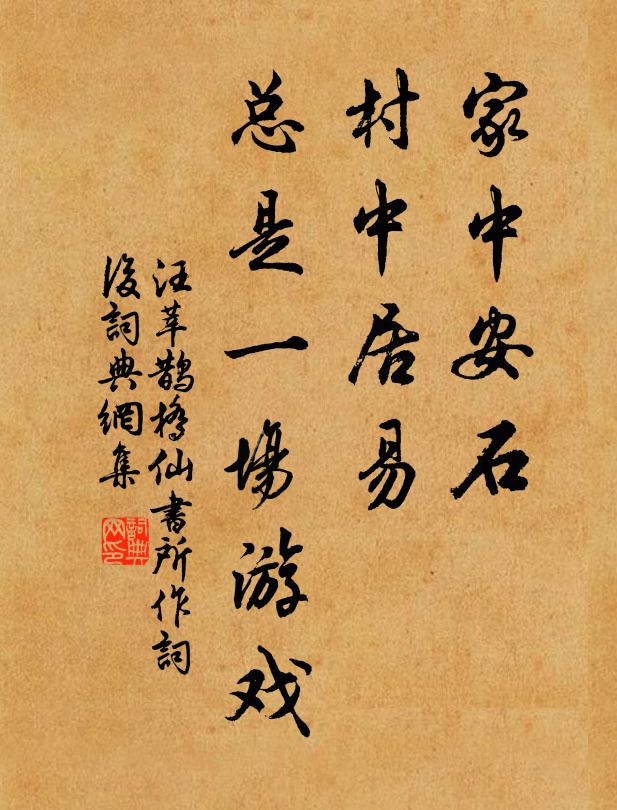 家中安石
村中居易
总是一場游戏
汪莘鹊橋仙書所作詞
後詞典網集
詞典网印